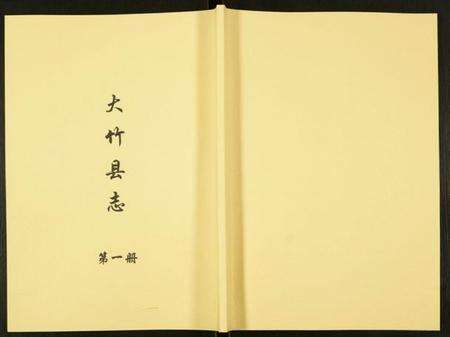 大竹县志
第一册